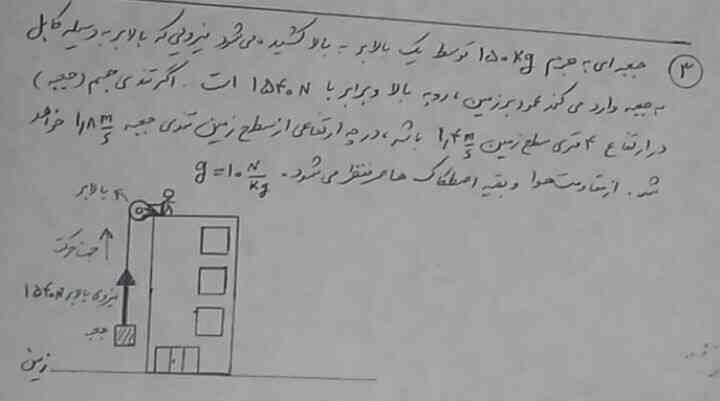 ۳ جعبه ای به جرم ۱۵۰kg توسط یک بالابر به بالا کشیده می شود نیرویی که بالابر به وسیله کابل
به جعبه وارد می کند عمود بر زمین، رو به بالا و برابر با ۱۵۴۰N است. اگر تندی جسم (جعبه)
در ارتفاع ۴ متری سطح زمین ۱,۴ m/s باشد، در چه ارتفاعی از سطح زمین تندی جعبه ۱,۸ m/s خواهد
شد. از مقاومت هوا و بقیه اصطکاک ها صرفنظر می شود. g = ۱۰ N/kg
بالابر
جهت حرکت
نیروی بالابر ۱۵۴۰N
جعبه
زمین